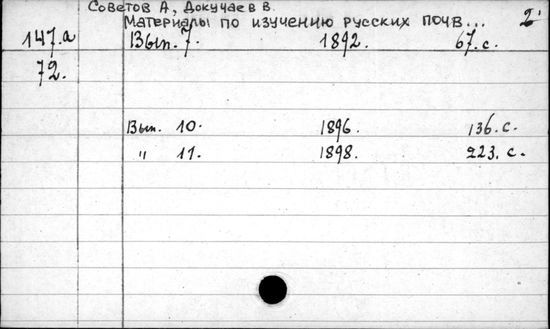 Советов А., Докучаев В.
Материалы по изучению русских почв... 2
147.а Вып. 7. 1892. 67. с.
72.
Вып. 10. 1896. 136. с.
" 11. 1898. 223. с.